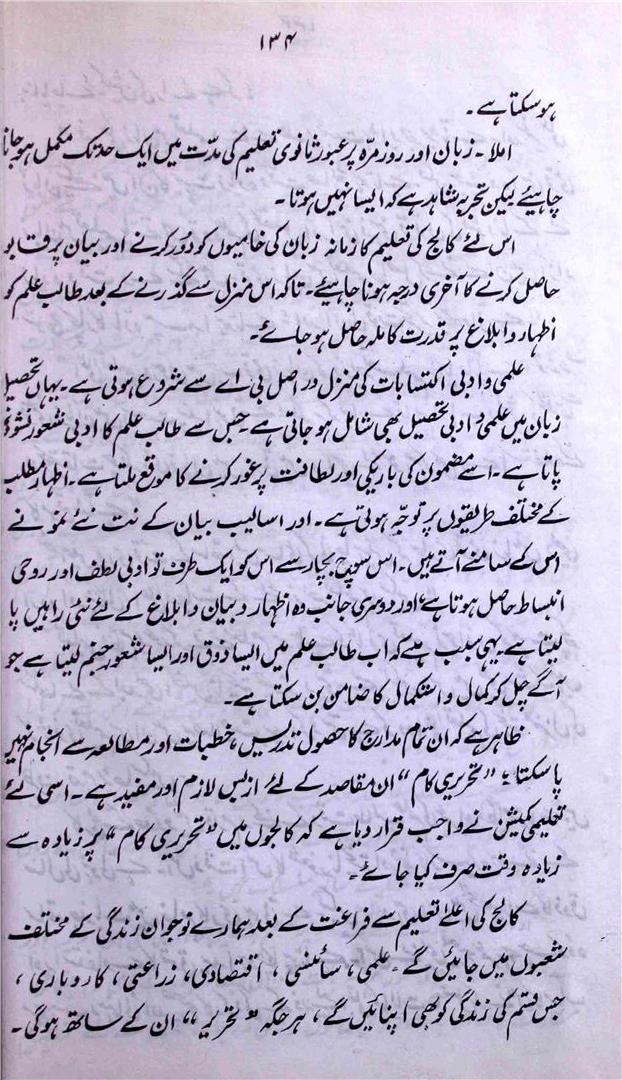 ۱۳۴
ہو سکتا ہے۔
املا۔ زبان اور روزمرّہ پر عبور ثانوی تعلیم کی مدّت میں ایک حد تک مکمل ہو جانا
چاہیئے لیکن تجربہ شاہد ہے کہ ایسا نہیں ہوتا۔
اس لئے کالج کی تعلیم کا زمانہ زبان کی خامیوں کو دُور کرنے اور بیان پر قابو
حاصل کرنے کا آخری درجہ ہونا چاہیئے۔ تاکہ اس منزل سے گذرنے کے بعد طالب علم کو
اظہار و ابلاغ پر قدرت کاملہ حاصل ہو جائے۔
علمی و ادبی اکتسابات کی منزل در اصل بی اے سے شروع ہوتی ہے۔ یہاں تحصیل
زبان میں علمی و ادبی تحصیل بھی شامل ہو جاتی ہے جس سے طالب علم کا ادبی شعور نشوونما
پاتا ہے۔ اسے مضمون کی باریکی اور لطافت پر غور کرنے کا موقع ملتا ہے۔ اظہار مطلب
کے مختلف طریقوں پر توجّہ ہوتی ہے۔ اور اسالیب بیان کے نت نئے نمونے
اس کے سامنے آتے ہیں۔ اس سوچ بچار سے اس کو ایک طرف تو ادبی لطف اور روحی
انبساط حاصل ہوتا ہے، اور دوسری جانب وہ اظہار و بیان و ابلاغ کے لئے نئی راہیں پا
لیتا ہے۔ یہی سبب ہے کہ اب طالب علم میں ایسا ذوق اور ایسا شعور جنم لیتا ہے جو
آگے چل کر کمال و استکمال کا ضامن بن سکتا ہے۔
ظاہر ہے کہ ان تمام مدارج کا حصول تدریس، خطبات اور مطالعہ سے انجام نہیں
پا سکتا؛ "تحریری کام" ان مقاصد کے لئے ازبس لازم اور مفید ہے۔ اسی لئے
تعلیمی کمیشن نے واجب قرار دیا ہے کہ کالجوں میں "تحریری کام" پر زیادہ سے
زیادہ وقت صرف کیا جائے۔
کالج کی اعلےٰ تعلیم سے فراغت کے بعد ہمارے نوجوان زندگی کے مختلف
شعبوں میں جائیں گے۔ علمی، سائنسی، اقتصادی، زراعتی، کاروباری،
جس قسم کی زندگی کو بھی اپنائیں گے، ہر جگہ "تحریر" ان کے ساتھ ہوگی۔